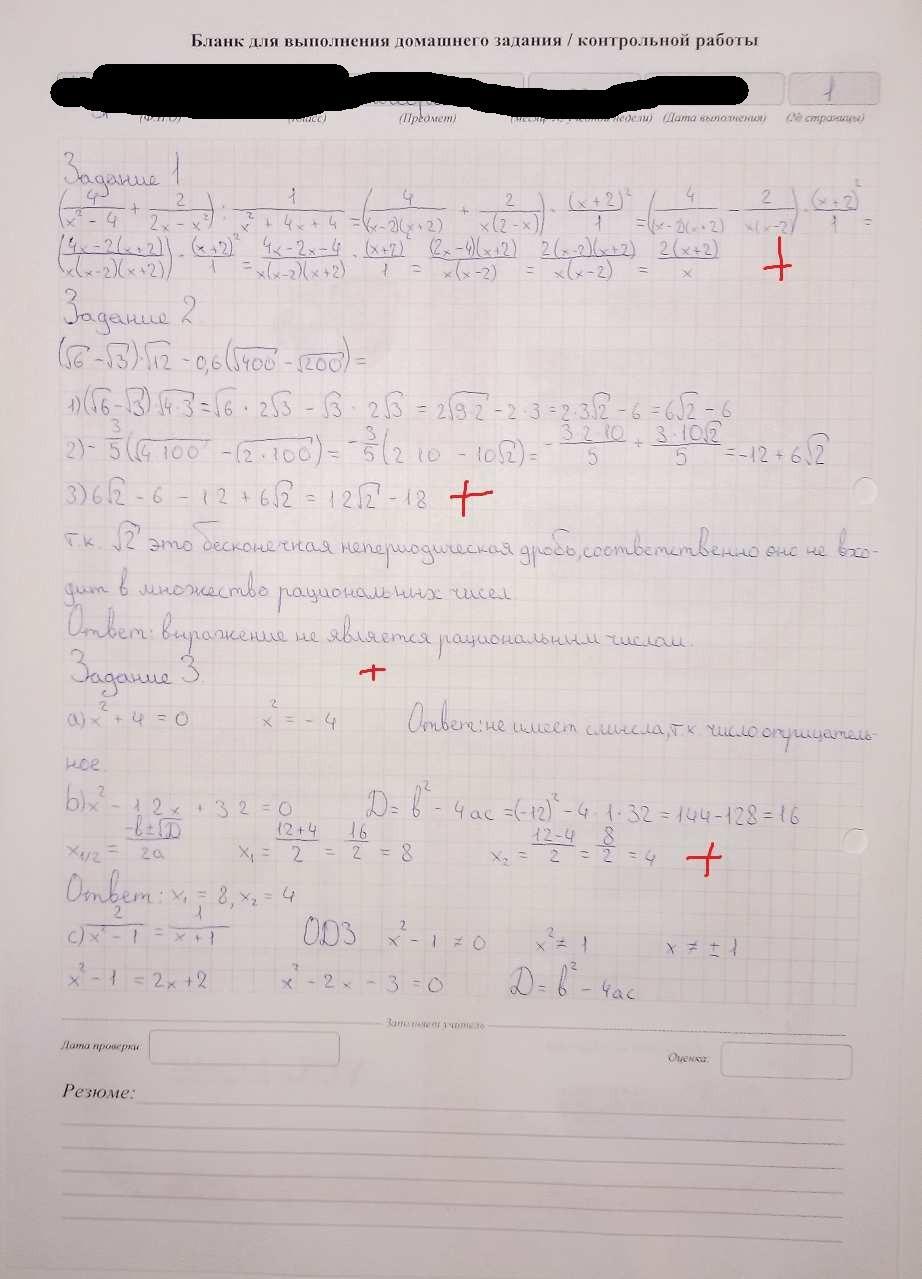 Бланк для выполнения домашнего задания / контрольной работы
1
(Ф.И.О) (Класс) (Предмет) (месяц, № учебной недели) (Дата выполнения) (№ страницы)
Задание 1
(4/(x² - 4) + 2/(2x - x²)) : 1/(x² + 4x + 4) = (4/((x-2)(x+2)) + 2/(x(2-x))) · (x+2)²/1 = (4/((x-2)(x+2)) - 2/(x(x-2))) · (x+2)²/1 =
((4x-2(x+2))/(x(x-2)(x+2))) · (x+2)²/1 = (4x-2x-4)/(x(x-2)(x+2)) · (x+2)²/1 = (2x-4)(x+2)/(x(x-2)) = 2(x-2)(x+2)/(x(x-2)) = 2(x+2)/x +
Задание 2
(√6 - √3)·√12 - 0,6(√400 - √200) =
1)(√6-√3)·√4·3 = √6 · 2√3 - √3 · 2√3 = 2√9·2 - 2·3 = 2·3√2 - 6 = 6√2 - 6
2)- 3/5(√4·100 - √(2·100)) = -3/5(2·10 - 10√2) = - 3·2·10/5 + 3·10√2/5 = -12 + 6√2
3)6√2 - 6 - 12 + 6√2 = 12√2 - 18 +
т.к. √2 это бесконечная непериодическая дробь, соответственно оно не вхо-
дит в множество рациональных чисел
Ответ: выражение не является рациональным числом.
Задание 3 +
a) x² + 4 = 0 x² = - 4 Ответ: не имеет смысла, т.к. число отрицатель-
ное.
b) x² - 12x + 32 = 0 D = b² - 4ac = (-12)² - 4·1·32 = 144-128 = 16
x1/2 = (-b±√D)/2a x₁ = (12+4)/2 = 16/2 = 8 x₂ = (12-4)/2 = 8/2 = 4 +
Ответ: x₁ = 8, x₂ = 4
c) 2/(x² - 1) = 1/(x+1) ОДЗ x² - 1 ≠ 0 x² ≠ 1 x ≠ ± 1
x² - 1 = 2x + 2 x² - 2x - 3 = 0 D = b² - 4ac
Заполняет учитель
Дата проверки: Оценка:
Резюме: